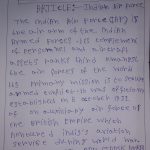 ARTICLE:- Indian Air Force
The Indian Air Force (IAF) is
the air arm of the Indian
Armed Forces. Its complement
of personnel and aircraft
assets ranks third amongst
the air forces of the world
Its primary mission is to secure
established in 8 october 1932
as an auxiliary air force of
the British Empire which
honoured India's aviation
service during world war